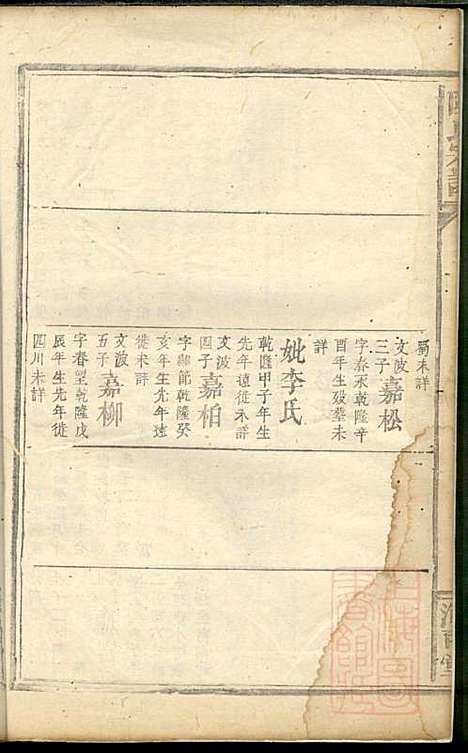 蜀未詳
文波
三子
嘉松
字春永乾隆辛
酉年生歿葬未
詳
妣李氏
乾隆甲子年生
先年遠徙未詳
文波
四子
嘉柏
字御節乾隆癸
亥年生先年遠
徙未詳
文波
五子
嘉柳
字春望乾隆戊
辰年生先年徙
四川未詳